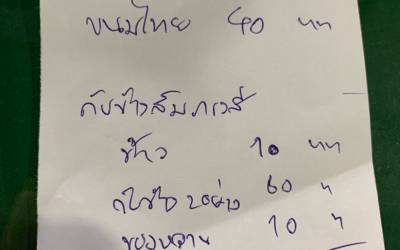 ขนมไทย 40 บาท
กับข้าวสัมภเวสี
ข้าว 10 บาท
กับข้าว 2อย่าง 60 "
ของหวาน 10 "